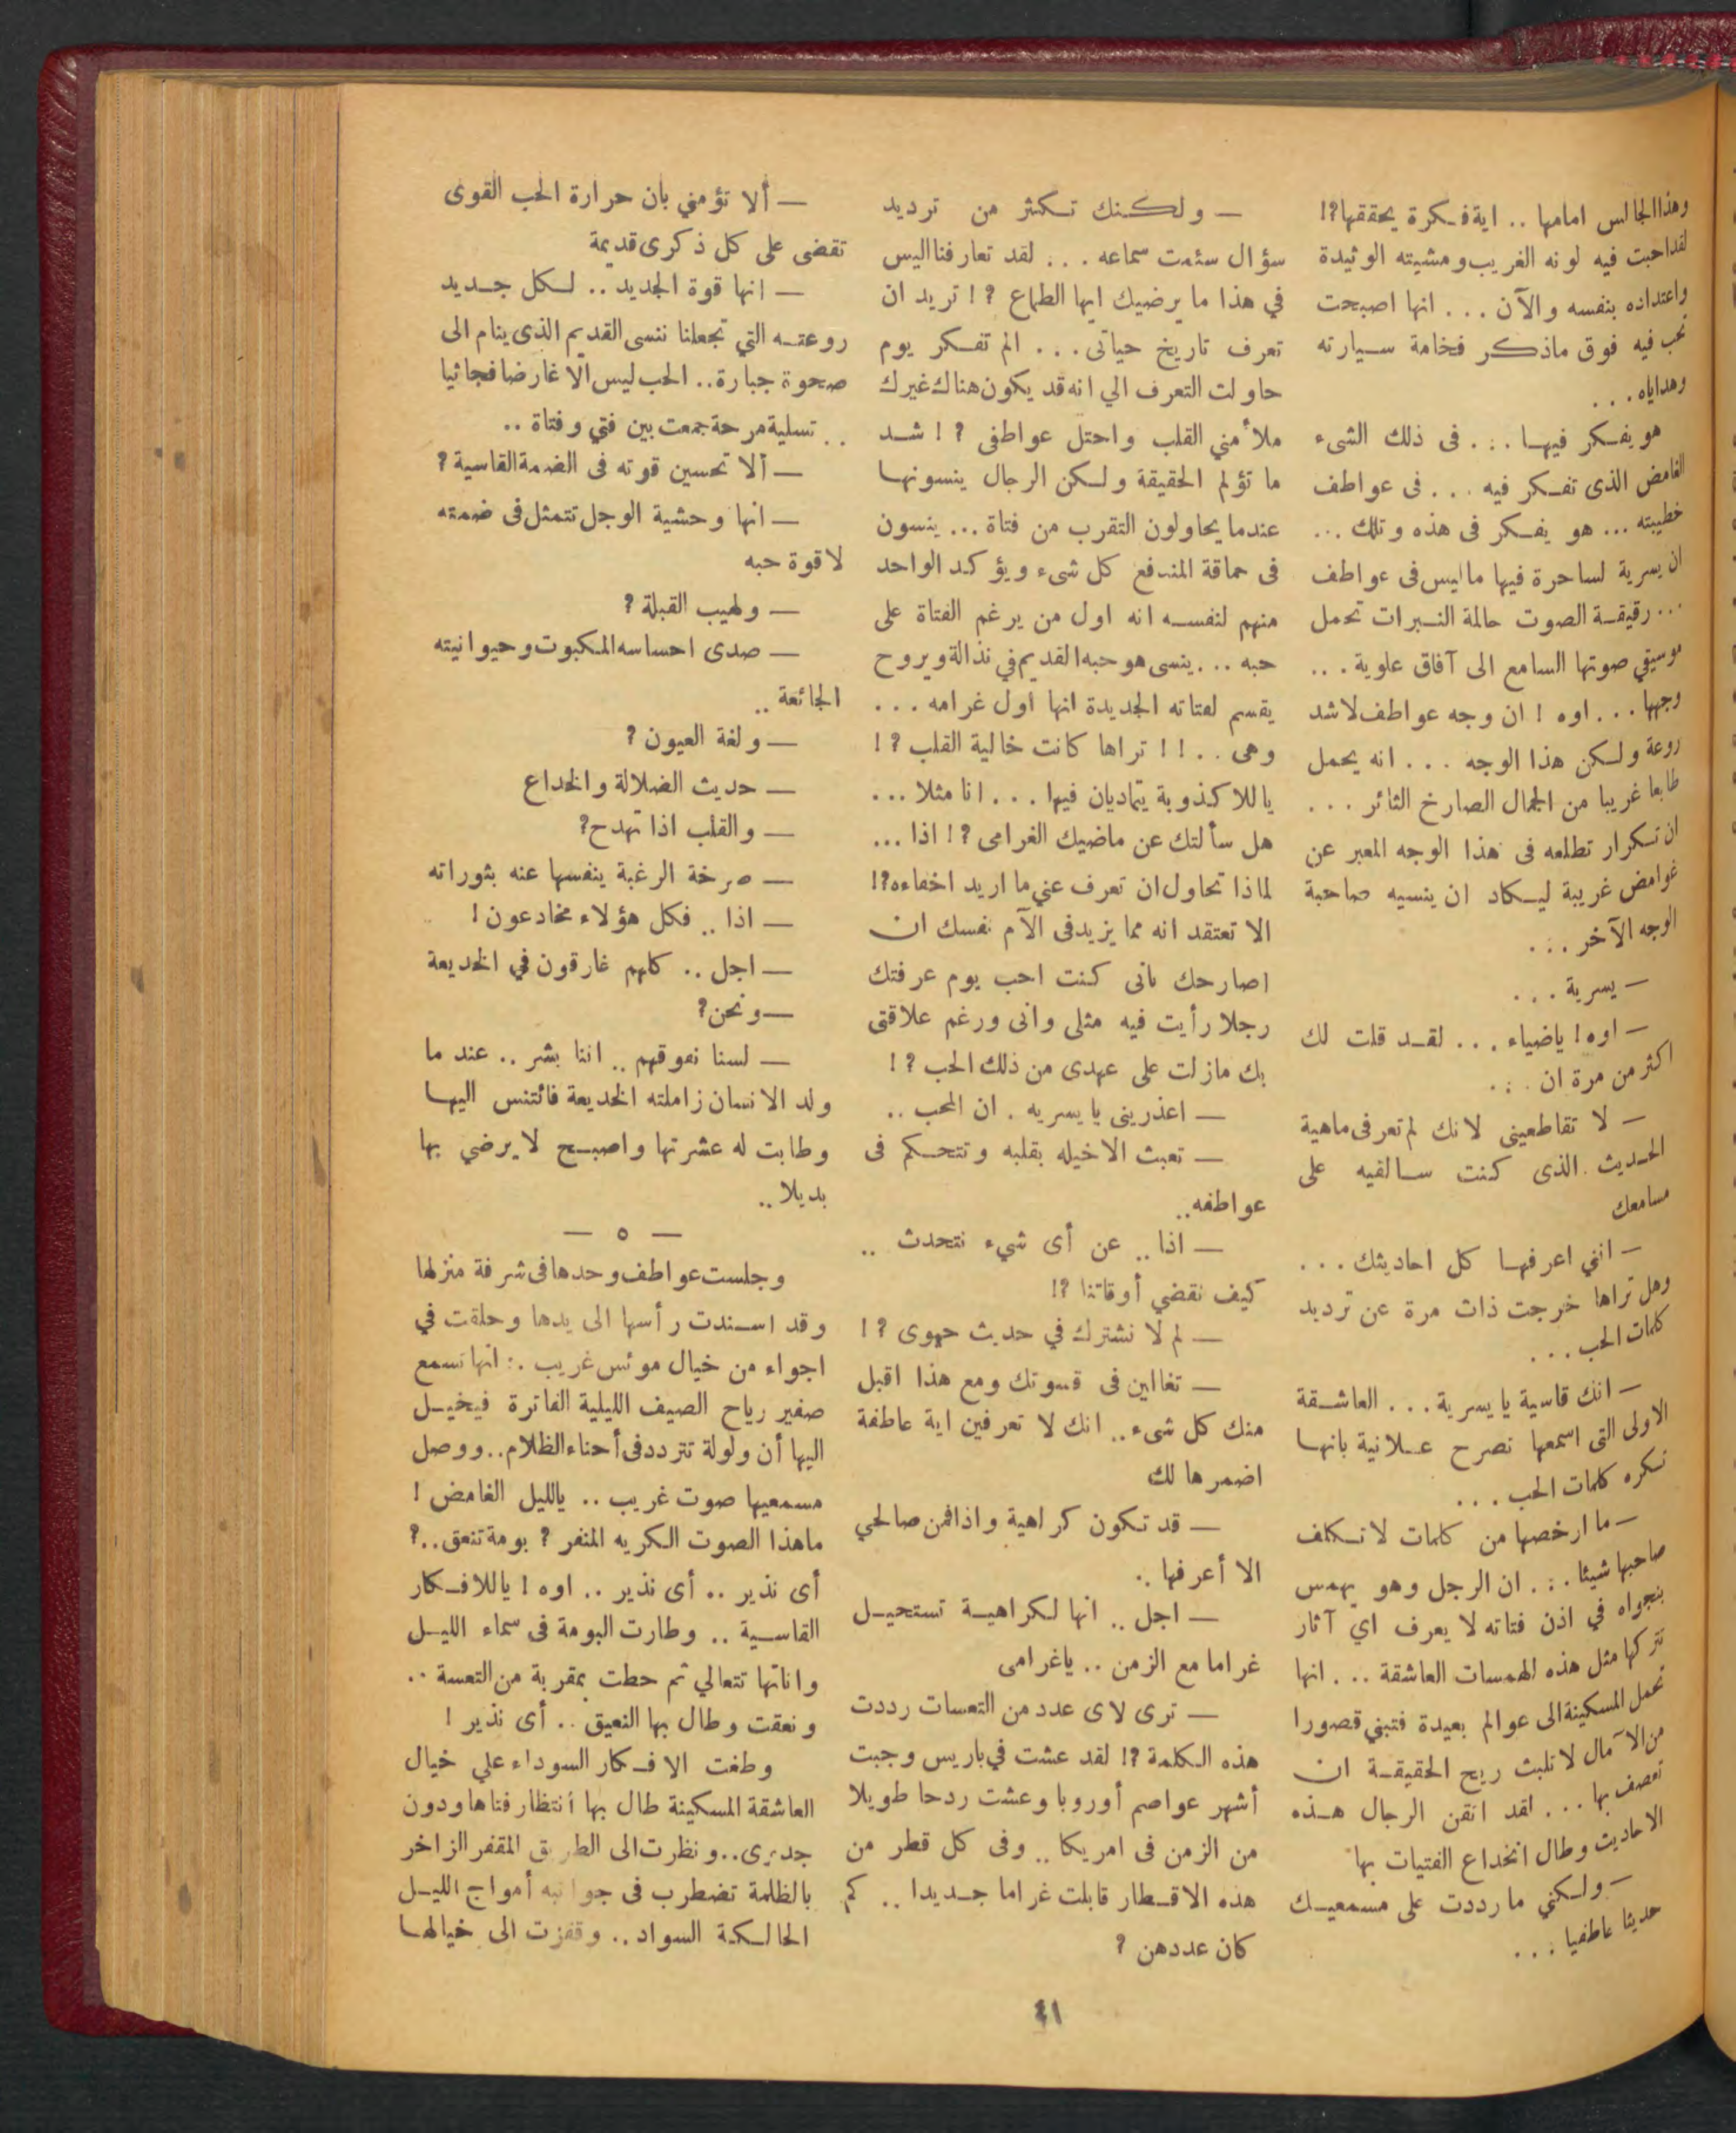 وهذا الجالس امامها .. اية فكرة يحققها؟!
لقد احبت فيه لونه الغريب ومشيته الوئيدة
واعتداده بنفسه والآن ... انها اصبحت
تحب فيه فوق ماذكر فخامة سيارته
وهداياه ...
هو يفكر فيها ... فى ذلك الشىء
الغامض الذى تفكر فيه ... فى عواطف
خطيبته ... هو يفكر فى هذه وتلك ...
ان يسرية لساحرة فيها ماليس فى عواطف
... رقيقة الصوت حالمة النبرات تحمل
موسيقي صوتها السامع الى آفاق علوية ...
وجهها ... اوه ! ان وجه عواطف لاشد
روعة ولكن هذا الوجه ... انه يحمل
طابعا غريبا من الجمال الصارخ الثائر ...
ان تكرار تطلعه فى هذا الوجه المعبر عن
غوامض غريبة ليكاد ان ينسيه صاحبة
الوجه الآخر ...
— يسرية ...
— اوه ! ياضياء ... لقد قلت لك
اكثر من مرة ان ...
— لا تقاطعينى لانك لم تعرفى ماهية
الحديث الذى كنت سالقيه على
مسامعك
— انني اعرفها كل احاديثك ...
وهل تراها خرجت ذات مرة عن ترديد
كلمات الحب ...
— انك قاسية يا يسرية ... العاشقة
الاولى التى اسمعها تصرح علانية بانها
تكره كلمات الحب ...
— ما ارخصها من كلمات لاتكلف
صاحبها شيئا ... ان الرجل وهو يهمس
بنجواه في اذن فتاته لا يعرف اي آثار
تتركها مثل هذه الهمسات العاشقة ... انها
تحمل المسكينة الى عوالم بعيدة فتبني قصورا
من الآمال لاتلبث ريح الحقيقة ان
تعصف بها ... لقد اتقن الرجال هذه
الاحاديث وطال انخداع الفتيات بها
— ولكني مارددت على مسمعيك
حديثا عاطفيا ...
— ولكنك تكثر من ترديد
سؤال سئمت سماعه ... لقد تعارفنا اليس
في هذا ما يرضيك ايها الطماع ؟ ! تريد ان
تعرف تاريخ حياتى ... الم تفكر يوم
حاولت التعرف الي انه قد يكون هناك غيرك
ملأ مني القلب واحتل عواطفى ؟ ! شد
ما تؤلم الحقيقة ولكن الرجال ينسونها
عندما يحاولون التقرب من فتاة ... ينسون
فى حماقة المندفع كل شىء ويؤكد الواحد
منهم لنفسه انه اول من يرغم الفتاة على
حبه ... ينسى هو حبه القديم في نذالة ويروح
يقسم لفتاته الجديدة انها اول غرامه ...
وهى .. ! ! تراها كانت خالية القلب ؟ !
ياللاكذوبة يتماديان فيها ... انا مثلا ...
هل سألتك عن ماضيك الغرامى ؟ ! اذا ...
لماذا تحاول ان تعرف عني ما اريد اخفاءه؟!
الا تعتقد انه مما يزيد فى الآم نفسك ان
اصارحك بانى كنت احب يوم عرفتك
رجلا رأيت فيه مثلى وانى ورغم علاقتى
بك مازلت على عهدى من ذلك الحب ؟ !
— اعذرينى يا يسريه . ان المحب ..
— تعبث الاخيله بقلبه وتتحكم فى
عواطفه ..
— اذا .. عن أى شيء نتحدث ..
كيف نقضي أوقاتنا ؟!
— لم لا نشترك في حديث حيوى ؟ !
— تغالين فى قسوتك ومع هذا اقبل
منك كل شىء .. انك لا تعرفين اية عاطفة
اضمرها لك
— قد تكون كراهية واذا فمن صالحي
الا أعرفها ..
— اجل .. انها لكراهية تستحيل
غراما مع الزمن .. ياغرامى
— ترى لاى عدد من التعسات رددت
هذه الكلمة ؟! لقد عشت في باريس وجبت
أشهر عواصم أوروبا وعشت ردحا طويلا
من الزمن فى امريكا .. وفى كل قطر من
هذه الاقطار قابلت غراما جديدا .. كم
كان عددهن ؟
— ألا تؤمني بان حرارة الحب القوى
تقضى على كل ذكرى قديمة
— انها قوة الجديد .. لكل جديد
روعته التي تجعلنا ننسى القديم الذى ينام الى
صحوة جبارة .. الحب ليس الا غارضا فجائيا
.. تسلية مرحة جمعت بين فتي وفتاة ..
— ألا تحسين قوته فى الضمة القاسية ؟
— انها وحشية الوجل تتمثل فى ضمته
لا قوة حبه
— ولهيب القبلة ؟
— صدى احساسه المكبوت وحيوانيته
الجائعة ..
— ولغة العيون ؟
— حديث الضلالة والخداع
— والقلب اذا تهدج؟
— صرخة الرغبة ينفسها عنه بثوراته
— اذا .. فكل هؤلاء مخادعون !
— اجل .. كلهم غارقون في الخديعة
— ونحن؟
— لسنا نفوقهم .. اننا بشر .. عند ما
ولد الانسان زاملته الخديعة فائتنس اليها
وطابت له عشرتها واصبح لايرضي بها
بديلا ..
— ٥ —
وجلست عواطف وحدها فى شرفة منزلها
وقد اسندت رأسها الى يدها وحلقت في
اجواء من خيال موئس غريب .: انها تسمع
صفير رياح الصيف الليلية الفاترة فيخيل
اليها أن ولولة تتردد فى أحناء الظلام .. ووصل
مسمعيها صوت غريب .. يالليل الغامض !
ماهذا الصوت الكريه المنفر ؟ بومة تنعق ..؟
أى نذير .. أى نذير .. اوه ! ياللافكار
القاسية .. وطارت البومة فى سماء الليل
واناتها تتعالي ثم حطت بمقربة من التعسة ..
ونعقت وطال بها النعيق .. أى نذير !
وطغت الافكار السوداء علي خيال
العاشقة المسكينة طال بها انتظار فتاها ودون
جدوى .. ونظرت الى الطريق المقفر الزاخر
بالظلمة تضطرب فى جوانبه أمواج الليل
الحالكة السواد .. وقفزت الى خيالها
٤١